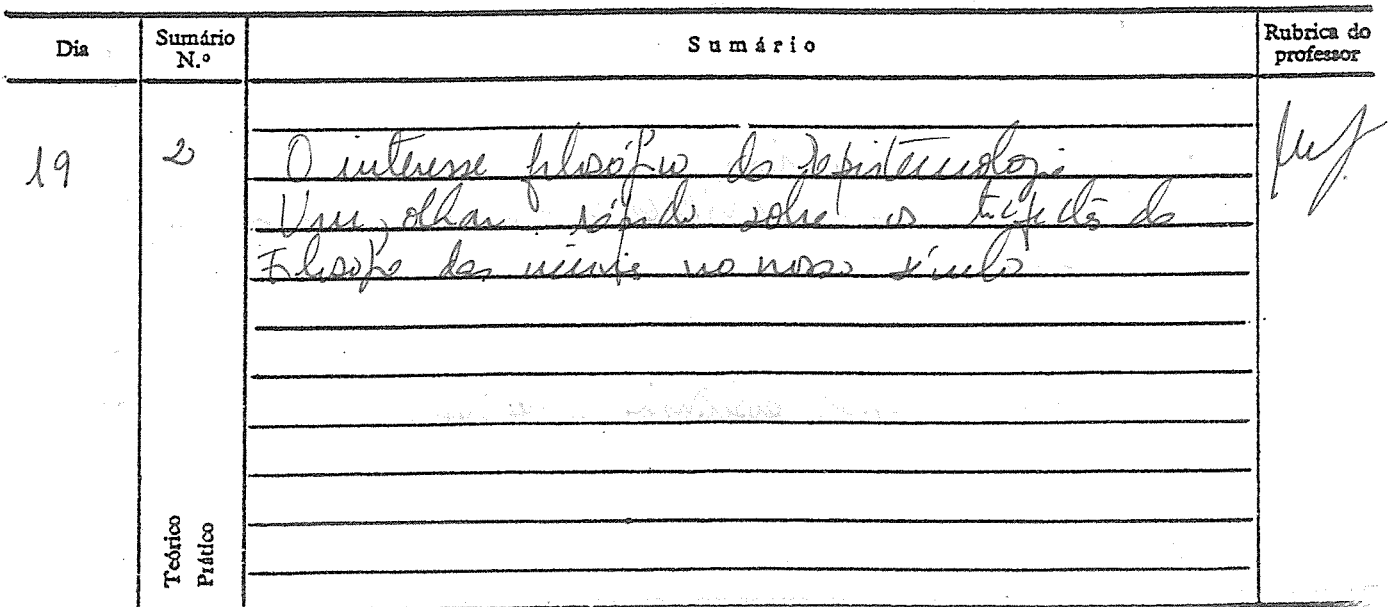 Dia Sumário N.º Sumário Rubrica do professor
19 2 O interesse filosófico da Epistemologia
Um olhar rápido sobre as da
Filosofia das ciências no nosso século
Teórico
Prático